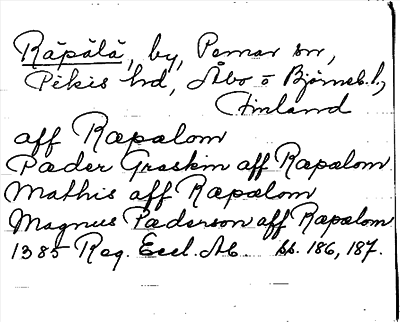 Räpälä, by, Pemar sn,
Pikis hd, Åbo o Björneb. l.,
Finland
aff Ræpalom
Pæder Graskin aff Ræpalom
Mathis aff Ræpælom
Magnus Pæderson aff Ræpalom
1385 Reg. Eccl. Ab. ss. 186, 187.